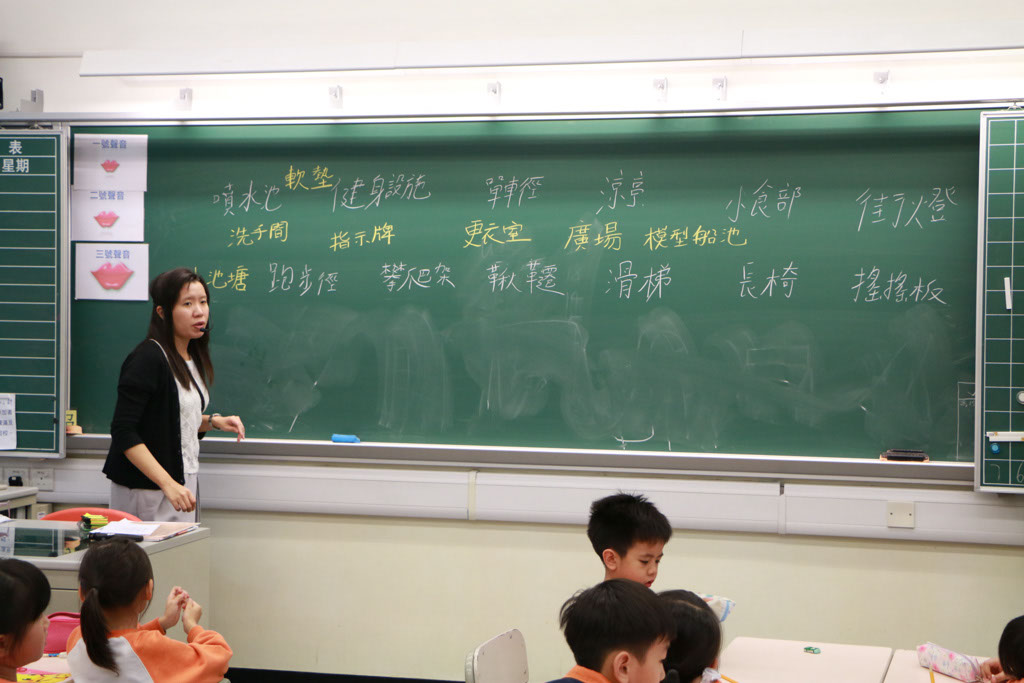 表
星期
一號聲音
二號聲音
三號聲音
軟墊
噴水池 健身設施 單車徑 涼亭 小食部 街燈
洗手間 指示牌 更衣室 廣場 模型船池
池塘 跑步徑 攀爬架 鞦韆 滑梯 長椅 搖搖板